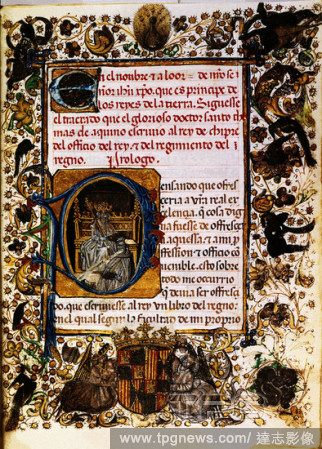 En el nombre ⁊ a loor de nr̃o se
ñor ihũ xpo. que es principe de
los reyes de la tierra. Siguesse
el tractado que el glorioso doctor santo tho
mas de aquino escriuio al rey de chipre
del officio del rey. ⁊ del regimiento del
regno. Prologo.
Pensando que offres
ceria a vr̃a real ex
celencia. q̃ cosa dig
na fuesse de offrescer
a aquessa. ⁊ a mi p
fession. ⁊ officio co
sobre
todo me occurrio
q̃ deuia offresçer
do. que escriuiesse al rey vn libro del regno:
en el qual segun la facultad de mi proprio
www.tpgnews.com / 達志影像